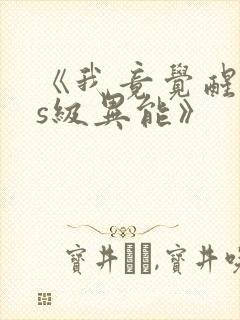 《我竟覺醒
s級異能》
寶井,寶井